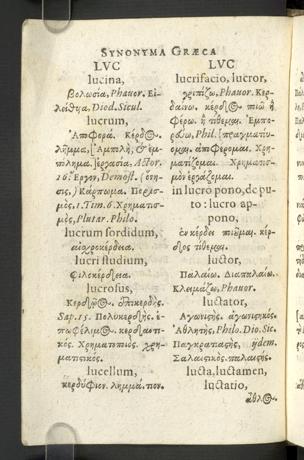 SYNONYMA GRÆCA
LVC
lucina,
Βολωσία, Phavor. Εἰ-
λείθυα, Diod. Sicul.
lucrum,
Ἀποφορά. Κέρδος.
Λῆμμα,
ἐργασία, Actor.
16. Ἔργον, Demost.
Κάρπωμα. Πορισ-
μὸς, 1. Tim. 6. Χρηματισ-
μὸς, Plutar. Philo.
lucrum sordidum,
αἰσχροκέρδεια.
lucri studium,
Φιλοκέρδεια.
lucrosus,
Κερδῷος. Ἐπικερδής.
Sap. 15. Πολυκερδής.
κερδαντι-
κός. Χρηματοποιός. χρη-
ματιστικός.
lucellum,
κερδύφιον. λημμάτιον.
LVC
lucrifacio, lucror,
Phavor. Κερ-
δαίνω. κέρδος
φέρω ἢ τίθεμαι. Ἐμπο-
Phil.
ἀποφέρομαι. Χρη-
ματίζομαι. Χρηματισ-
μὸν ἐργάζομαι.
in lucro pono, depu-
to : lucro ap-
pono,
ἐν κέρδει ποιοῦμαι. κέρ-
δος τίθεμαι.
luctor,
Παλαίω. Διαπαλαίω.
Phavor.
luctator,
Αγωνιστής. ἀγωνιστικός.
Ἀθλητής, Philo. Dio. Sic.
Παγκρατιαστής, ijdem.
παλαιστής.
lucta, luctamen,
luctatio,
ἆθλος.